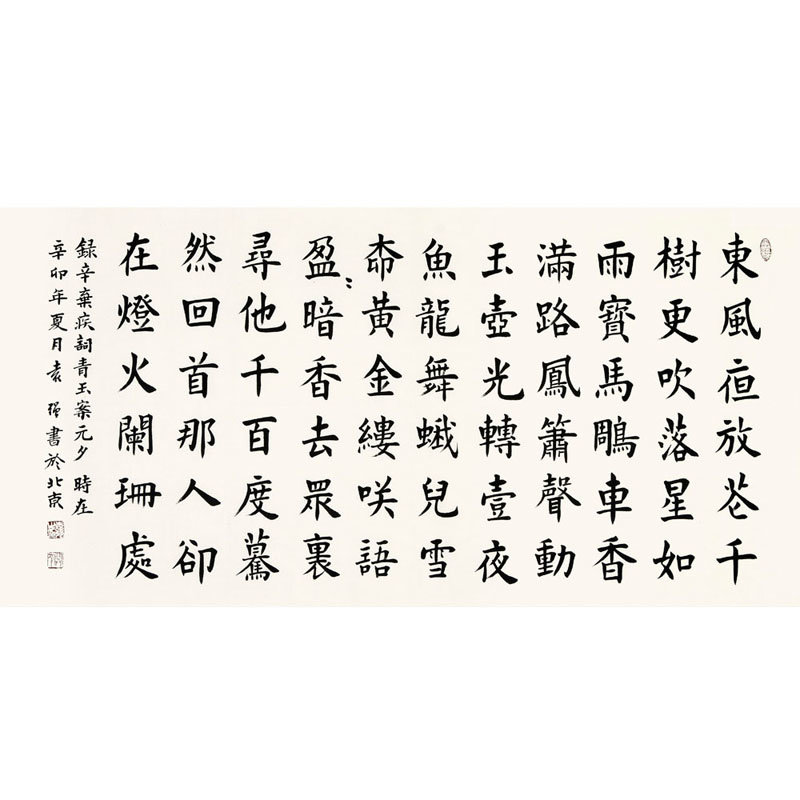 東風亱放芲千
樹更吹落星如
雨寶馬鵰車香
滿路鳳簫聲動
玉壺光轉壹夜
魚龍舞蛾兒雪
柳黃金縷咲語
盈〻暗香去眾裏
尋他千百度驀
然回首那人卻
在燈火闌珊處
録辛棄疾詞青玉案元夕 時在
辛卯年夏月袁强書於北京